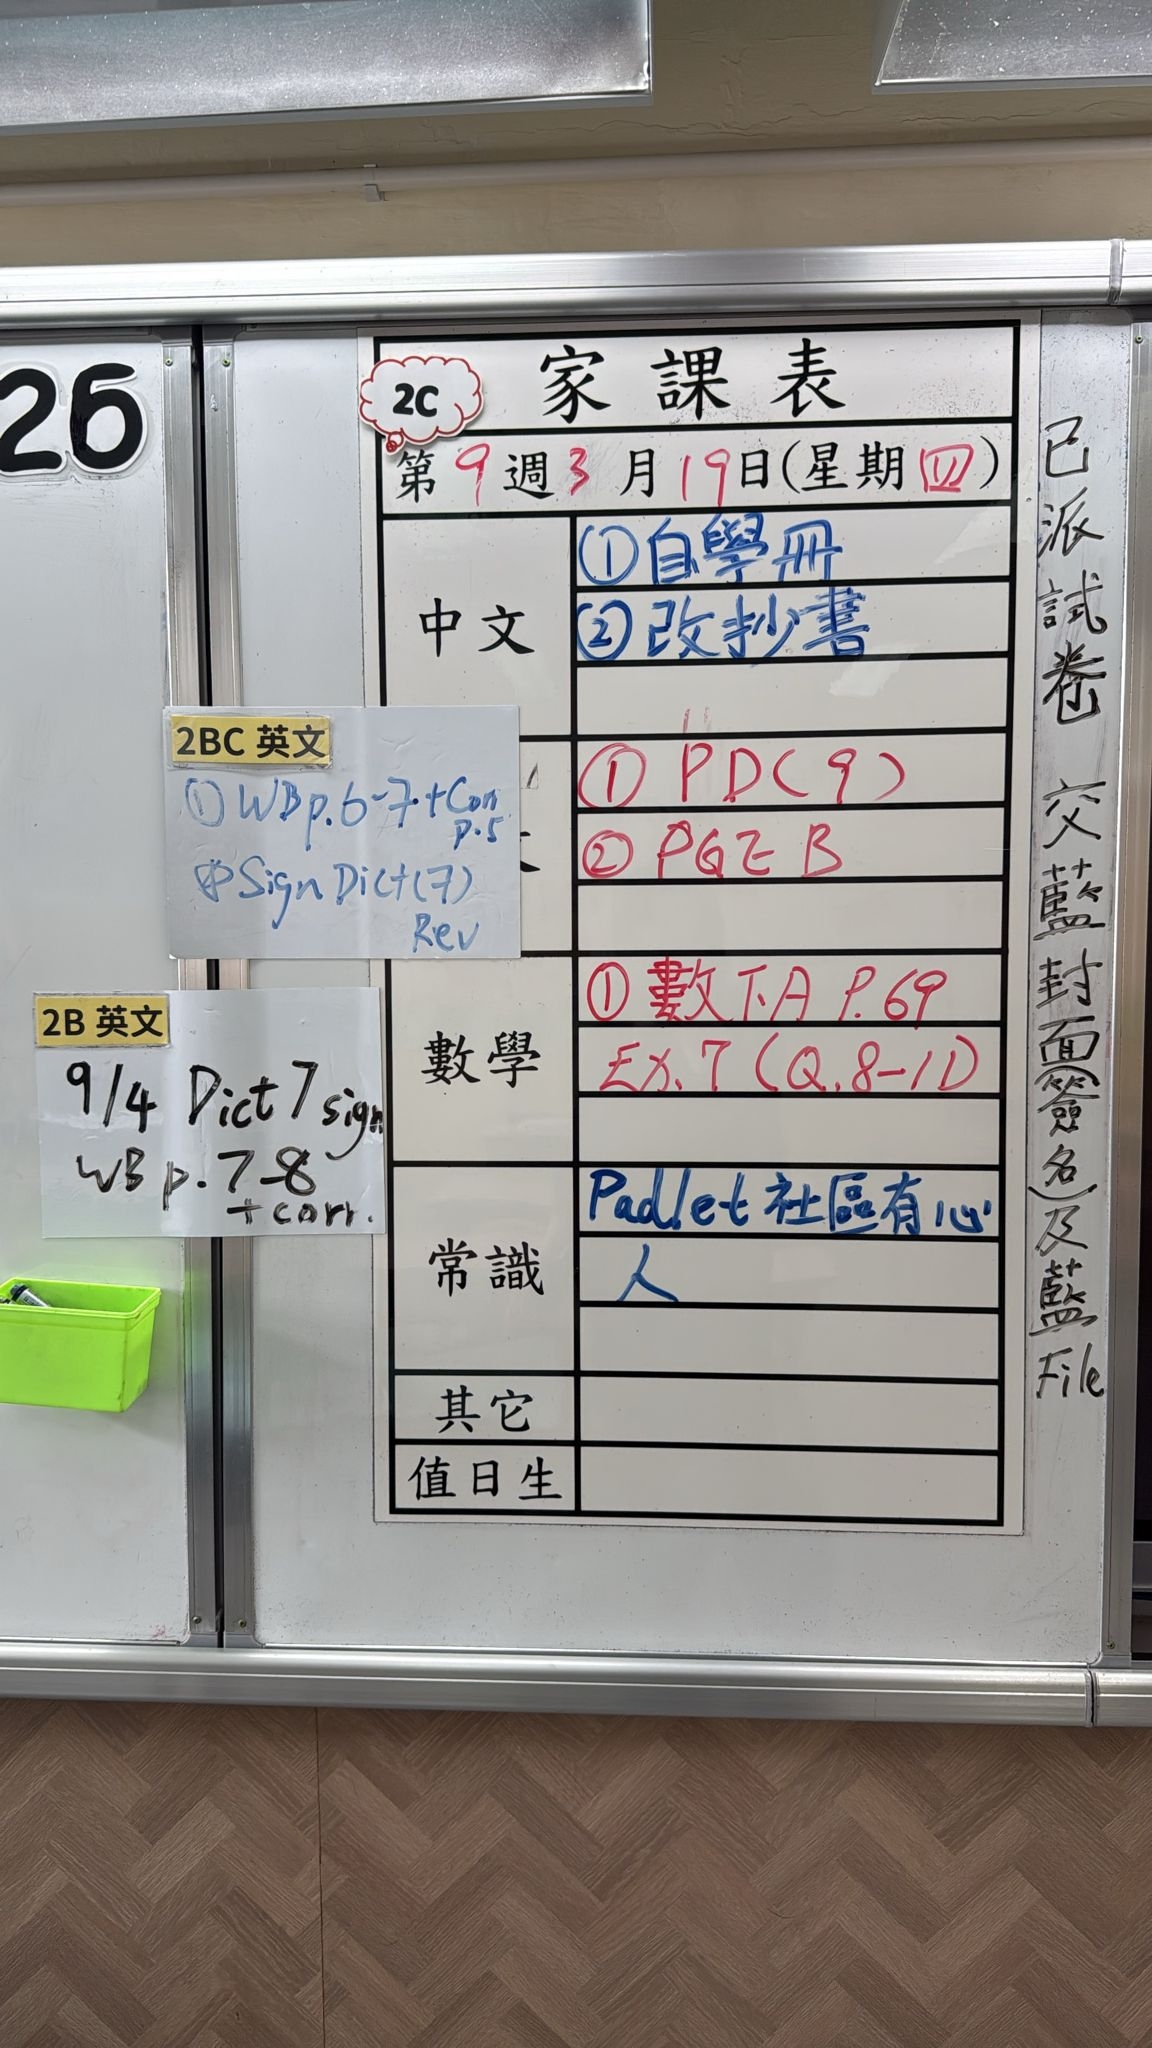 26
2C
家課表
第9週3月19日(星期四)
中文
①自學冊
②改抄書
2BC 英文
① WB p.6-7 + Corr p.5
Sign Dict(7)
Rev
① PD(9)
② PGE B
2B 英文
9/4 Dict 7 sign
WB p.7-8
+ corr.
數學
①數下A P.69
Ex.7 (Q.8-11)
常識
Padlet 社區有心
人
其它
值日生
已派試卷 交藍封面(簽名)及藍File